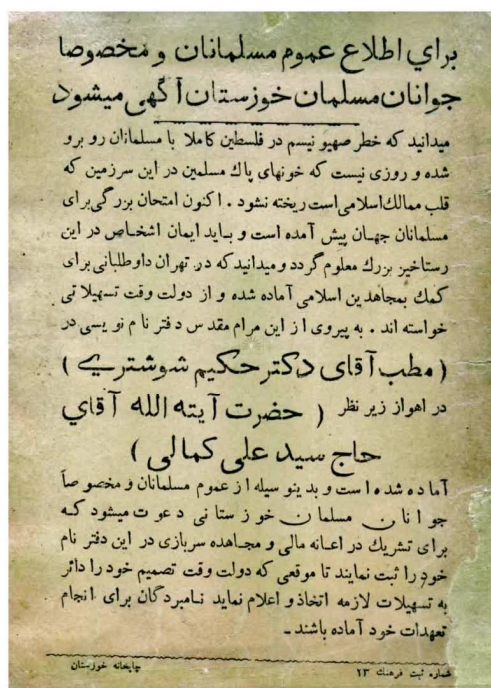 براي اطلاع عموم مسلمانان و مخصوصا
جوانان مسلمان خوزستان آگهی میشود
میدانید که خطر صهیو نیسم در فلسطین کاملا با مسلمانان رو برو
شده و روزی نیست که خونهای پاك مسلمین در این سرزمین که
قلب ممالك اسلامی است ریخته نشود . اکنون امتحان بزرگی برای
مسلمانان جهان پیش آمده است و باید ایمان اشخاص در این
رستاخیز بزرك معلوم گردد و میدانید که در تهران داوطلبانی برای
کمك بمجاهدین اسلامی آماده شده و از دولت وقت تسهیلا تی
خواسته اند . به پیروی از این مرام مقدس دفتر نام نویسی در
( مطب آقای دکتر حکیم شوشتري )
در اهواز زیر نظر ( حضرت آیته الله آقاي
حاج سید علی کمالی )
آماده شده است و بدینوسیله از عموم مسلمانان و مخصوصاً
جوانان مسلمان خوزستانی دعوت میشود که
برای تشریك در اعانه مالی و مجاهده سربازی در این دفتر نام
خود را ثبت نمایند تا موقعی که دولت وقت تصمیم خود را دائر
به تسهیلات لازمه اتخاذ و اعلام نماید نامبردگان برای انجام
تعهدات خود آماده باشند ـ
شماره ثبت فرهنك ۲۳
چاپخانه خوزستان